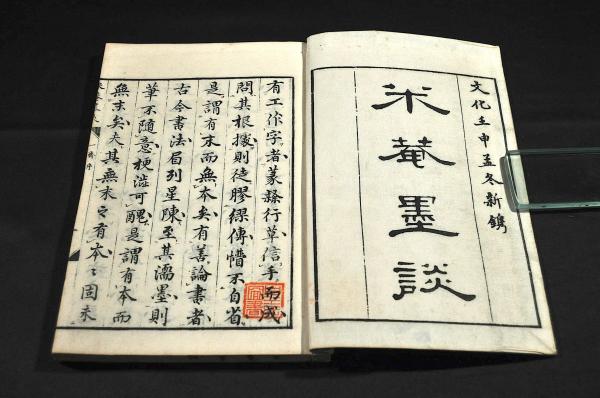 文化壬申孟冬新鐫
米菴墨談
有工作字者篆隸行草信手而成
問其根據則徒膠繆傳懵不自省
是謂有末而無本矣有善論書者
古今書法眉列星陳至其濡墨則
筆不隨意梗澁可醜是謂有本而
無末矣夫其無末〻有本〻固未